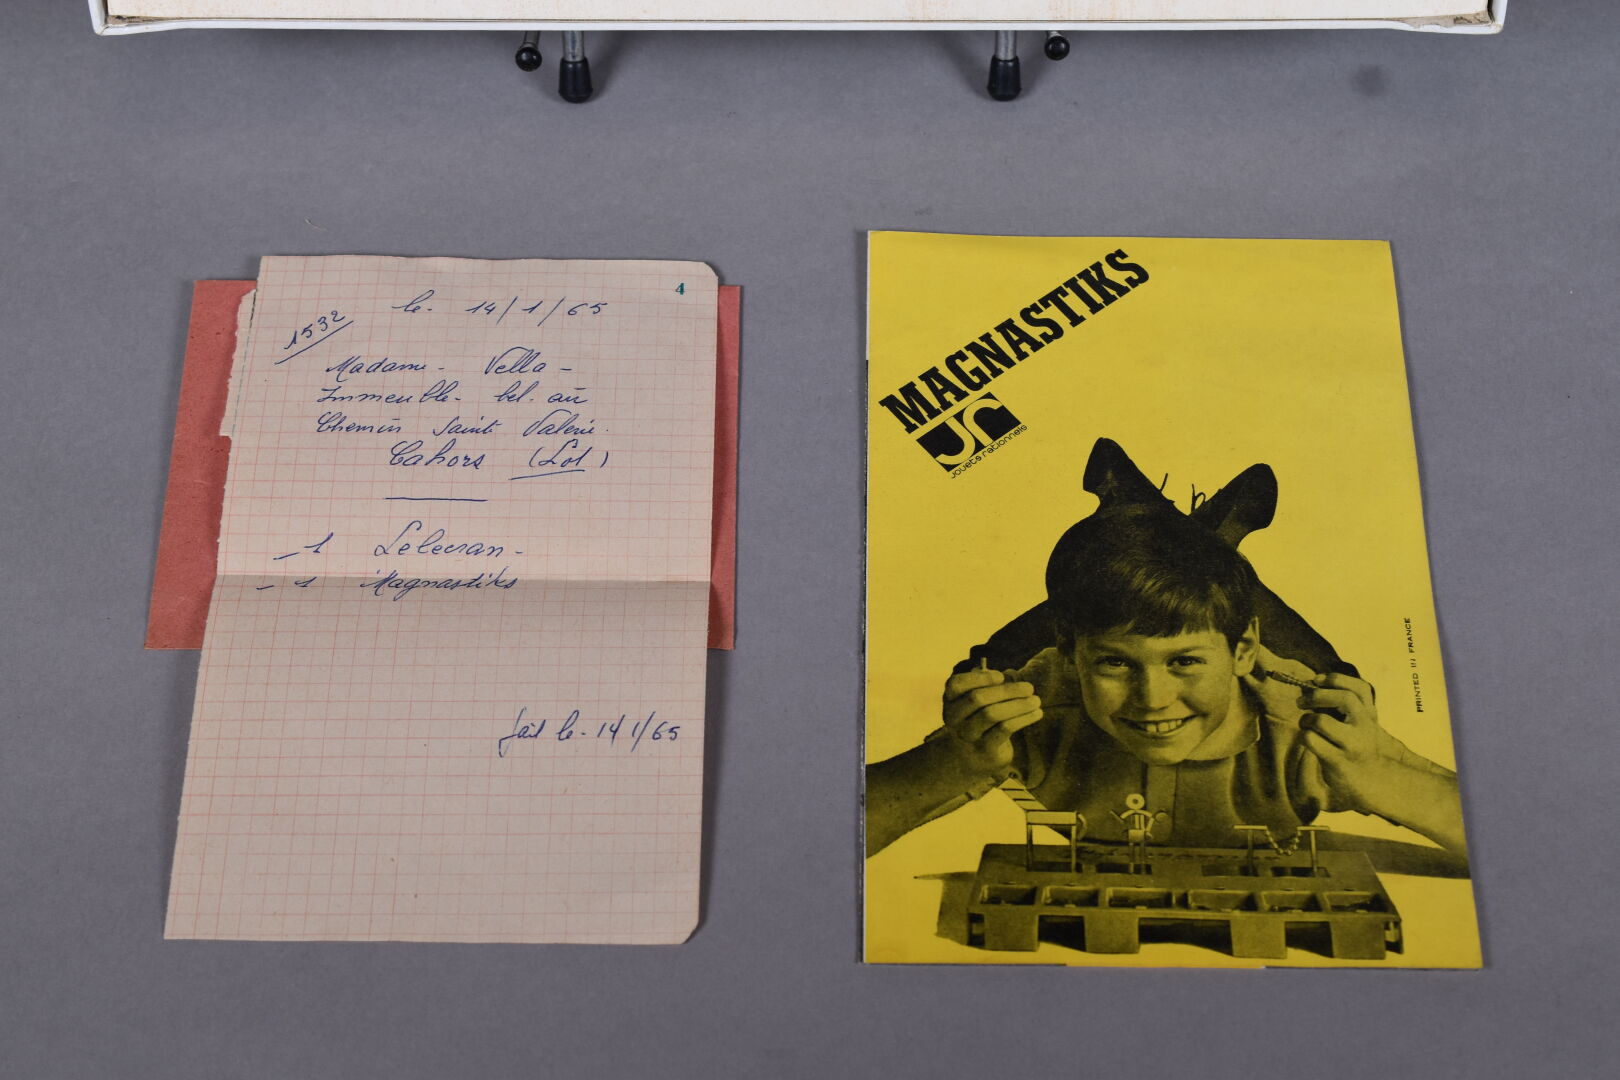 4
le. 14/1/65
1532
Madame - Vella -
Immeuble - bel. air
Chemin Sainte Valerie.
Cahors (Lot)
- 1 Telecran -
- 1 Magnastiks
fait le - 14/1/65
MAGNASTIKS
jr
jouets rationnels
PRINTED IN FRANCE